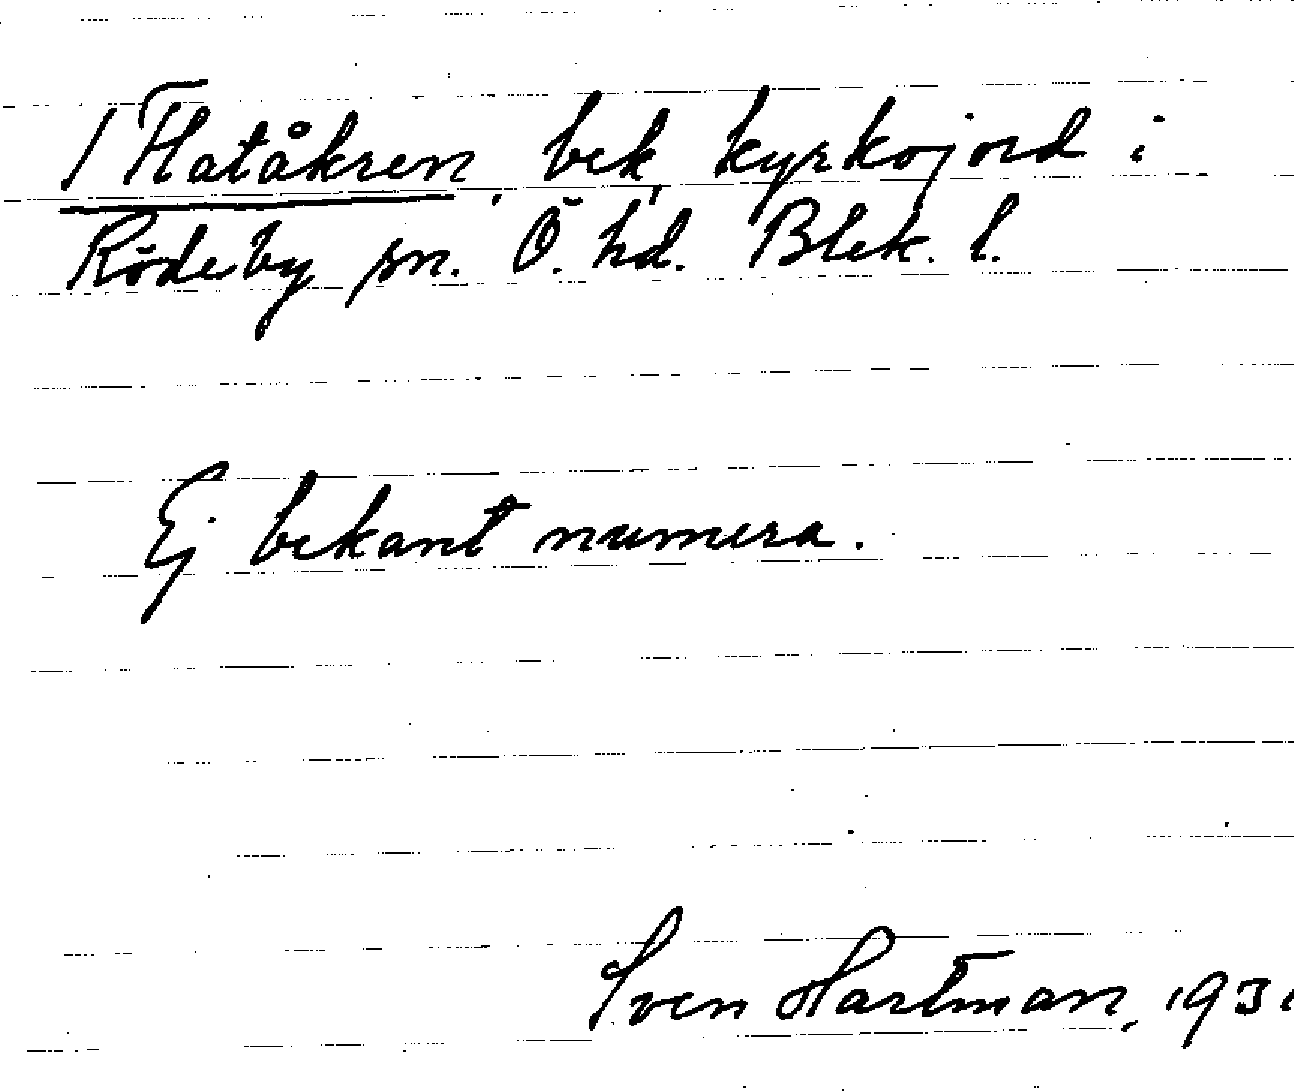 / Flatåkren, bek, kyrkojord i
Rödeby sn. Ö. hd. Blek. l.
Ej bekant numera.
Sven Hartman, 1931